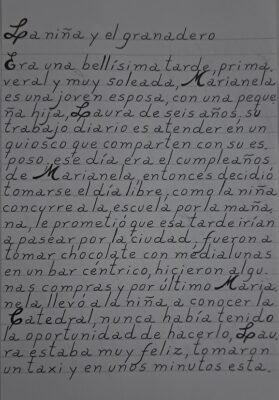 La niña y el granadero
Era una bellísima tarde, prima-
veral y muy soleada, Marianela
es una joven esposa, con una peque
ña hija, Laura de seis años, su
trabajo diario es atender en un
quiosco que comparten con su es
poso, ese día era el cumpleaños
de Marianela, entonces decidió
tomarse el día libre, como la niña
concurre a la escuela por la maña
na, le prometió que esa tarde irían
a pasear por la ciudad, fueron a
tomar chocolate con medialunas
en un bar céntrico, hicieron algu
nas compras y por último Maria
nela, llevó a la niña, a conocer la
Catedral, nunca había tenido
la oportunidad de hacerlo, Lau
ra estaba muy feliz, tomaron
un taxi y en unos minutos esta.